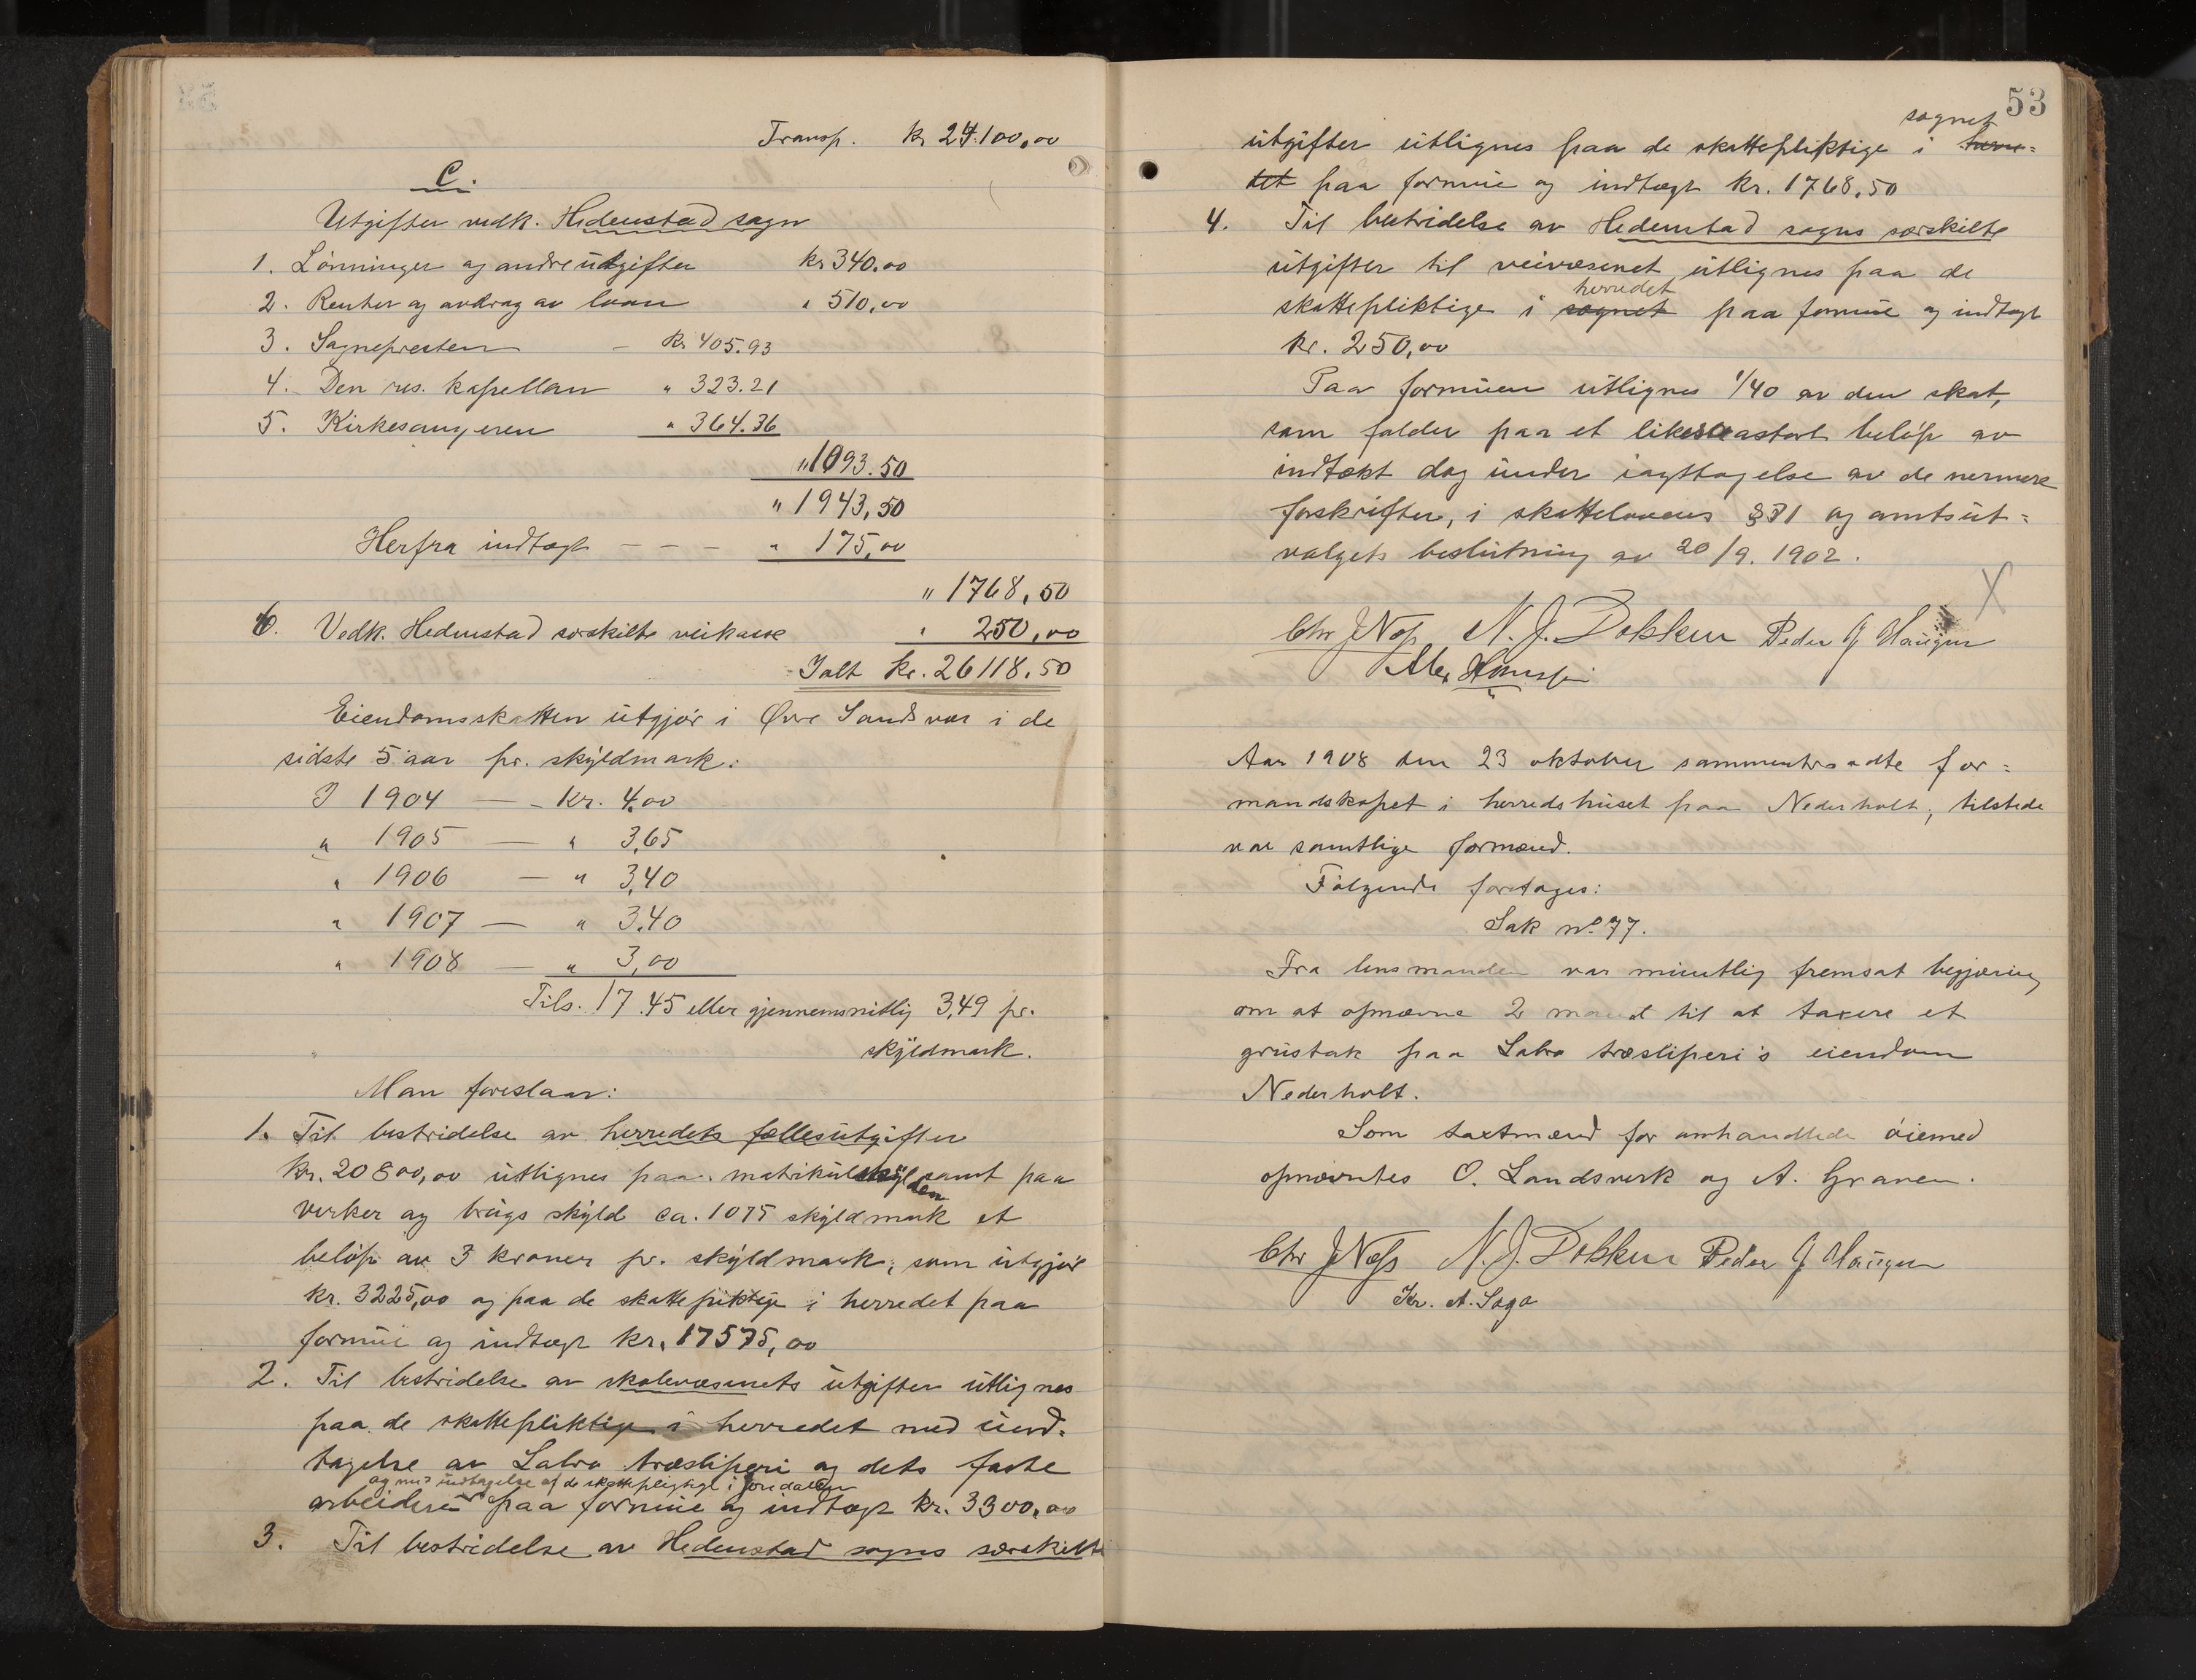 Transp. kr 24.100,00
C.
Utgifter vedk. Hedenstad sogn
1. Lönninger og andre utgifter kr 340,00
2. Renter og avdrag av laan " 510,00
3. Sognepresten – Kr 405.93
4. Den res. kapellan " 323.21
5. Kirkesangeren " 364.36
" 1093.50
" 1943,50
Herfra indtægt – – – " 175,00
" 1768,50
6. Vedk. Hedenstad særskilte veikasse " 250,00
Ialt kr. 26118.50
Eiendomsskatten utgjør i Øvre Sandsvær i de
sidste 5 aar pr. skyldmark:
I 1904 — Kr. 4.00
" 1905 — " 3,65
" 1906 — " 3,40
" 1907 — " 3.40
" 1908 — " 3,00
Tils. 17.45 eller gjennemsnitlig 3,49 pr.
skyldmark.
Man foreslaar:
1. Til bestridelse av herredets fællesutgifter
kr. 20800,00 utlignes paa matrikulskylden samt paa
verker og brugs skyld ca. 1075 skyldmark et
beløp av 3 kroner pr. skyldmark, som utgjør
kr. 3225,00 og paa de skattepliktige i herredet paa
formue og indtægt kr. 17575,00
2. Til bestridelse av skolevæsenets utgifter utlignes
paa de skattepliktige i herredet med und-
tagelse av Labro træsliperi og dets faste
og med undtagelse af de skattepligtige i Jondalen
arbeidere paa formue og indtægt kr. 3300,00
3. Til bestridelse av Hedenstad sogns særskilte
53
sognet
utgifter utlignes paa de skattepliktige i herre=
det paa formue og indtægt kr. 1768,50
4. Til bestridelse av Hedenstad sogns særskilte
utgifter til veivæsenet utlignes paa de
herredet
skattepliktige i sognet paa formue og indtægt
kr. 250,00
Paa formuen utlignes 1/40 av den skat,
som falder paa et likesaastort beløp av
indtækt dog under iagttagelse av de nermere
forskrifter, i skattelovens § 31 og amtsut=
valgets beslutning av 20/9. 1902.
Chr J Næss N. J. Dokken Peder G Haugen
Aar 1908 den 23 oktober sammentraadte for=
mandskapet i herredshuset paa Nederholt, tilstede
var samtlige formænd.
Følgende foretages:
Sak no. 77.
Fra lensmanden var muntlig fremsat begjæring
om at opnævne 2 mænd til at taxere et
grustak paa Labro træsliperi's eiendom
Nederholt.
Som taxtmænd for omhandlede öiemed
opnævntes O. Landsverk og A. Graven.
Chr J Næss N. J. Dokken Peder G Haugen
Kr. A. Saga